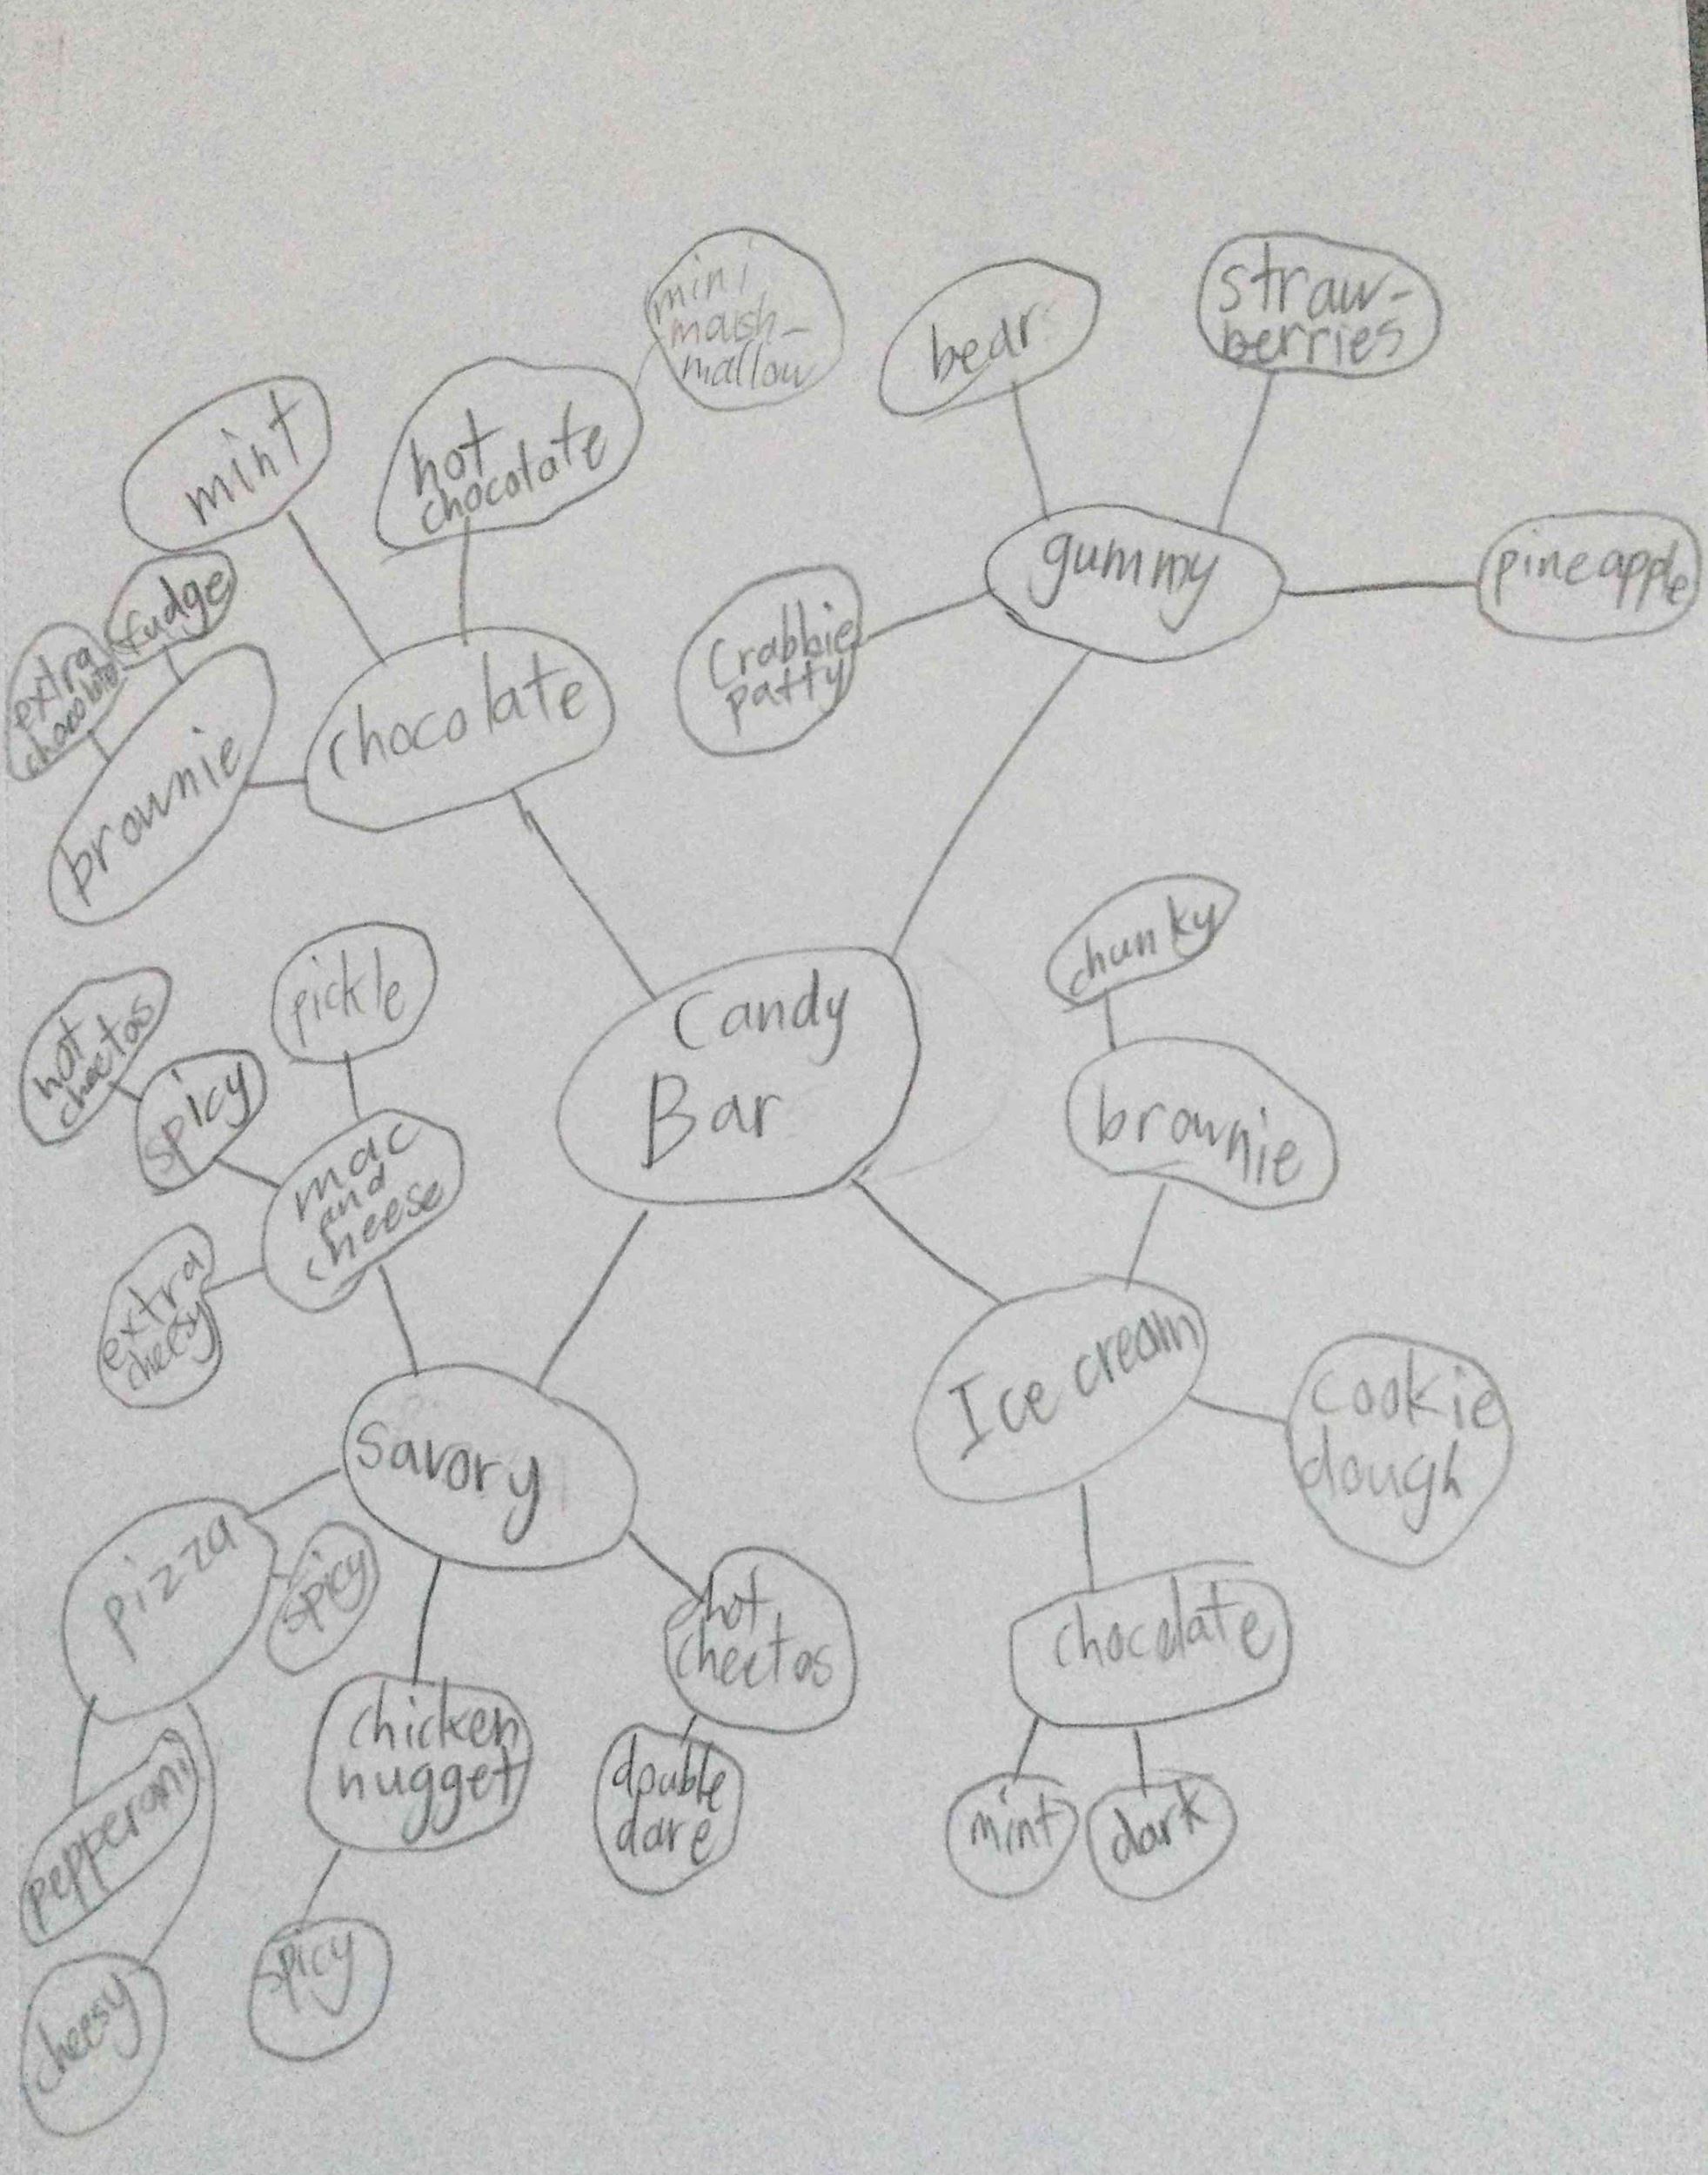 mini
maish-
mallow
bear
straw-
berries
mint
hot
chocolate
gummy
pineapple
fudge
extra
chocolate
Crabbie
patty
chocolate
brownie
chunky
pickle
Candy
Bar
hot
cheetos
spicy
brownie
mac
and
cheese
extra
cheesy
Ice cream
cookie
dough
Savory
pizza
spicy
hot
cheetos
chocolate
chicken
nugget
double
dare
mint
dark
pepperoni
spicy
cheesy